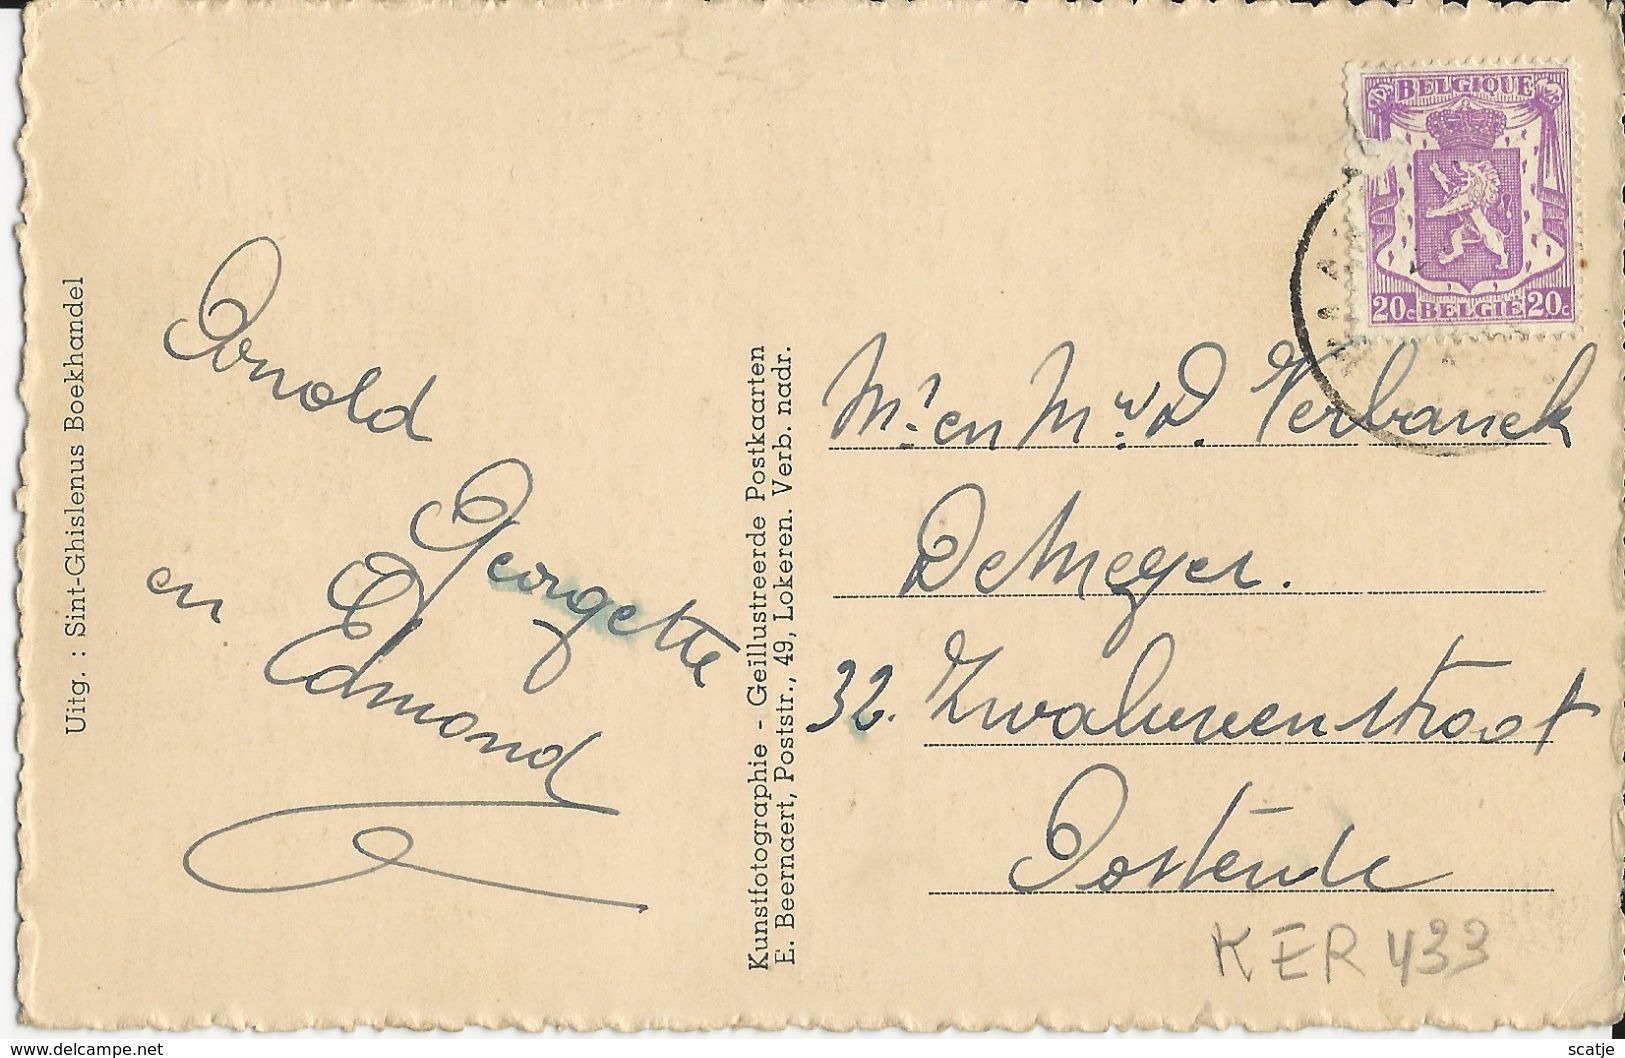 Uitg. : Sint-Ghislenus Boekhandel
Arnold
Georgette
en Edmond
Kunstfotographie - Geillustreerde Postkaarten
E. Beernaert, Poststr., 49, Lokeren. Verb. nadr.
BELGIQUE
20c BELGIË 20c
Mr. en Mw. D. Verbanck
De Meyer.
32. Zwaluwenstraat
Oostende
KER 433
www.delcampe.net
scatje